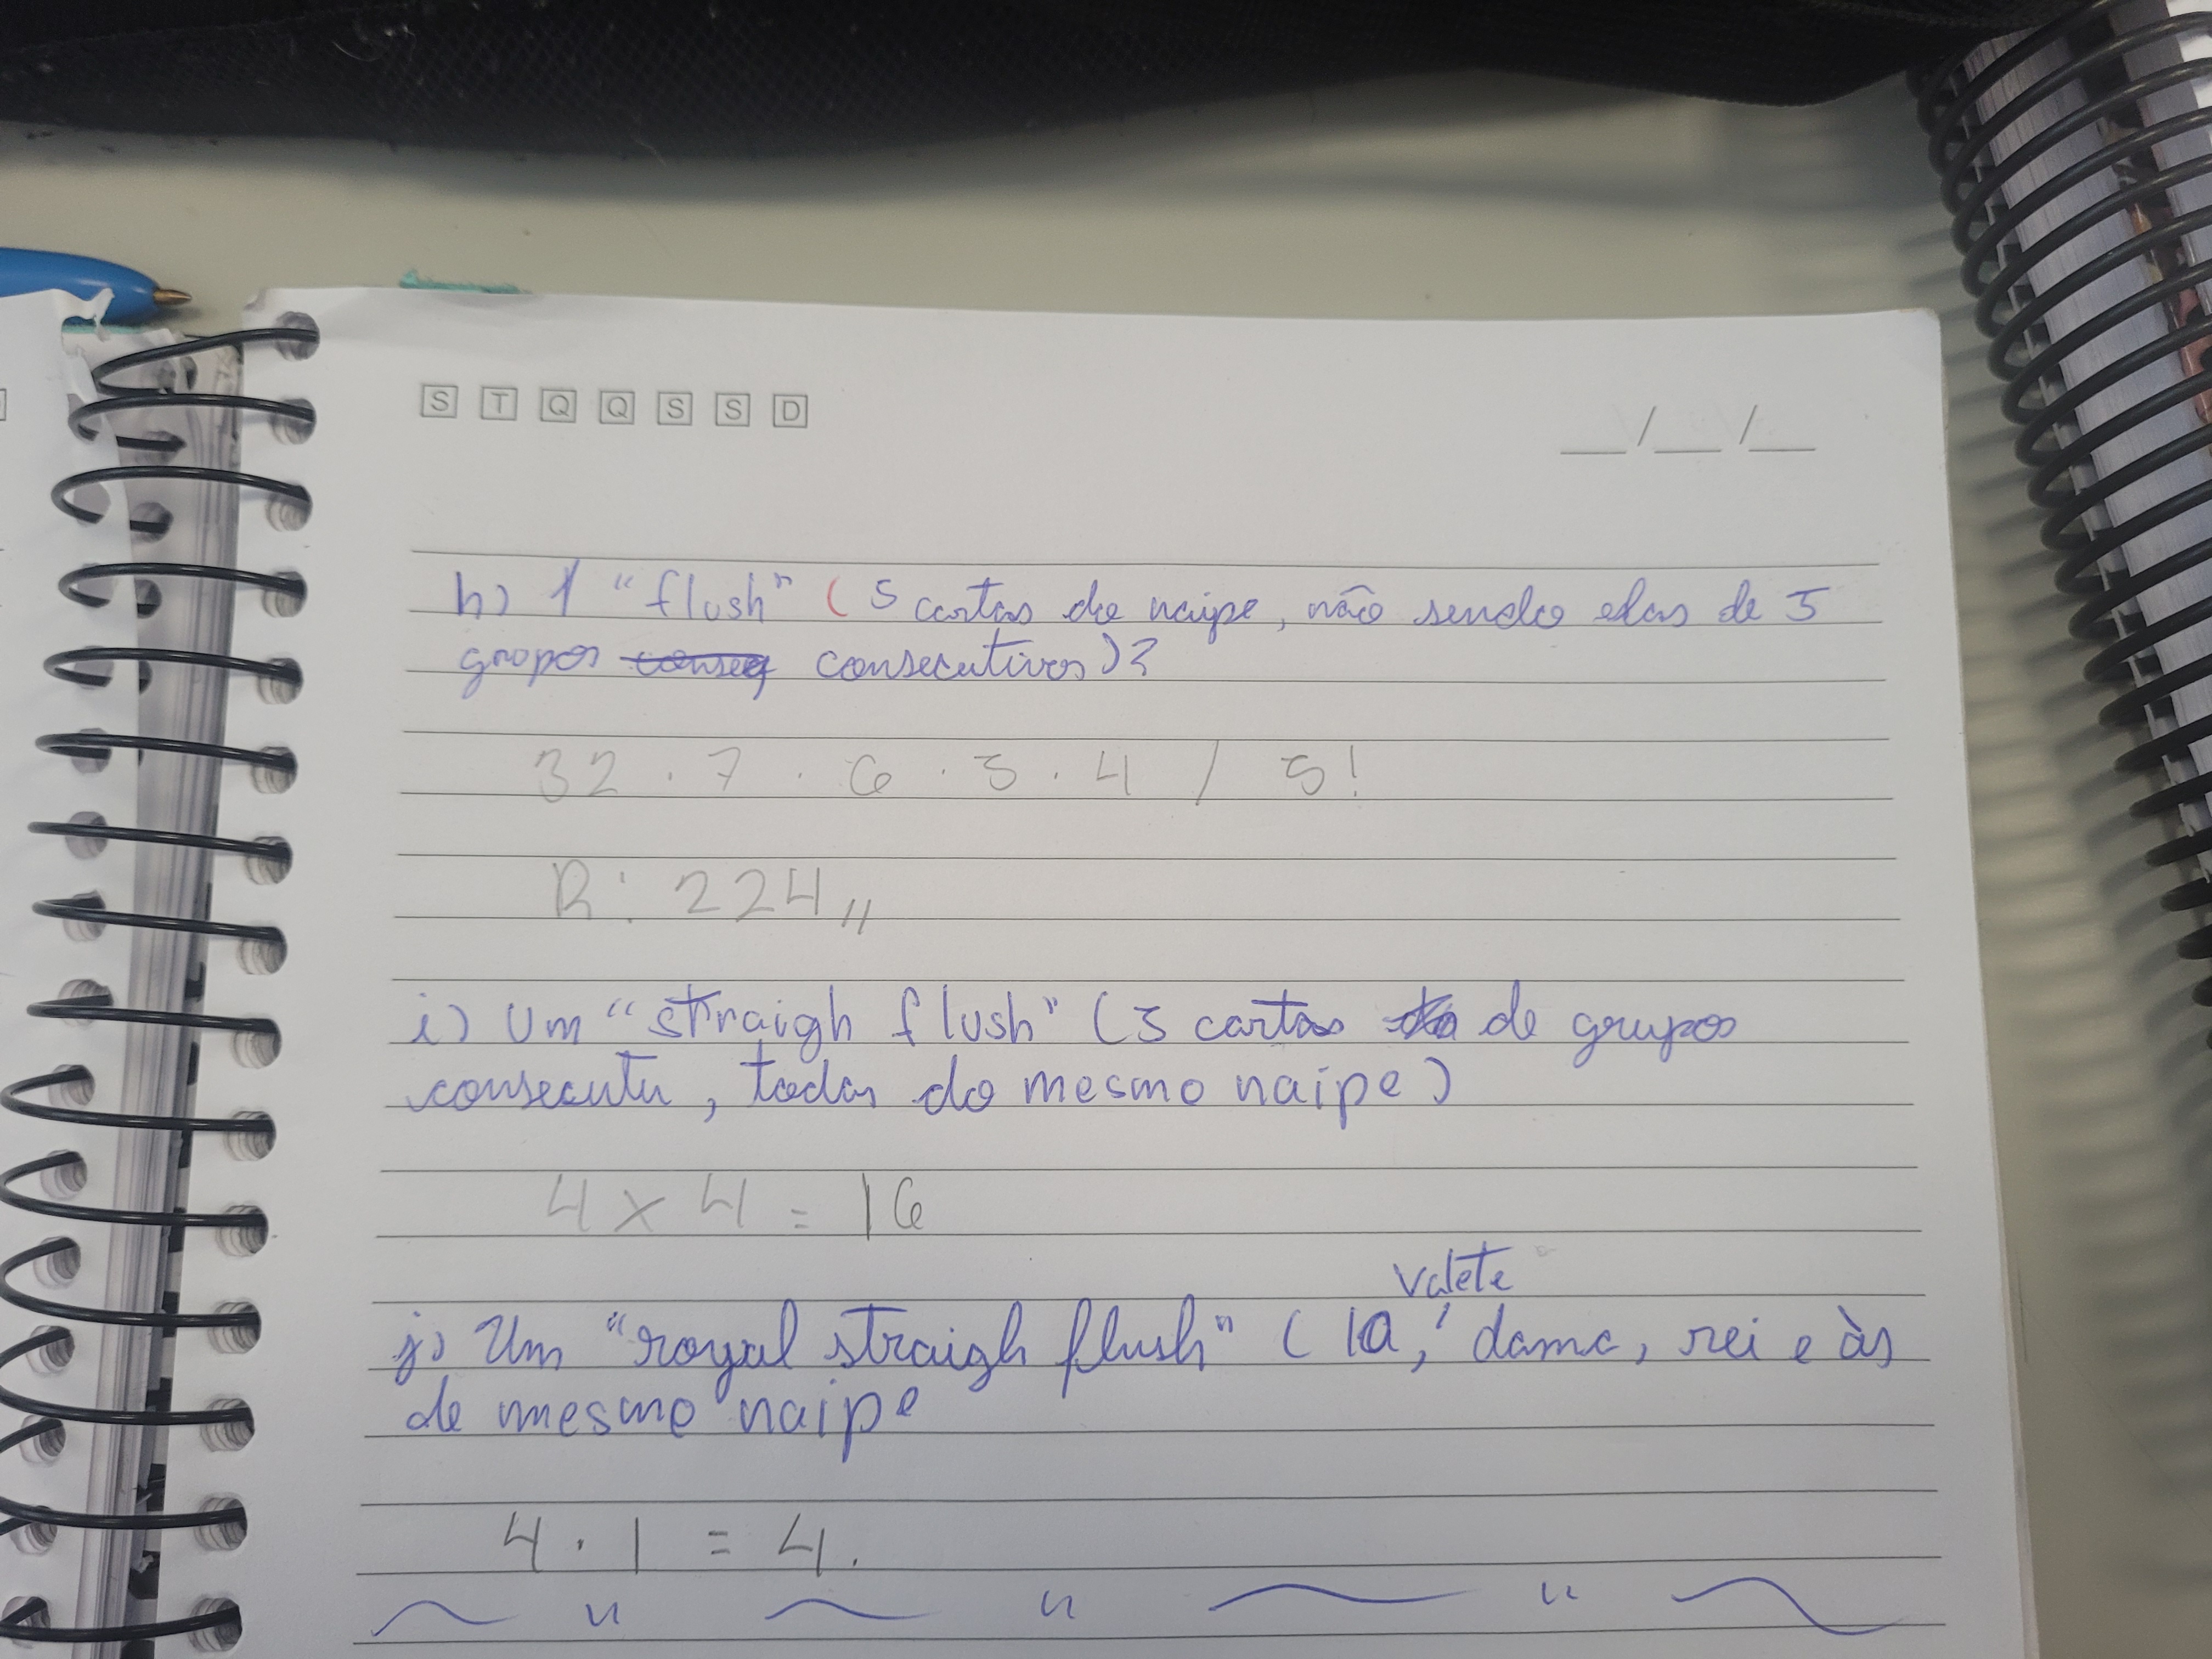 S T Q Q S S D
__/__/__
h) 1 "flush" (5 cartas de naipe, não sendo elas de 5
grupos consecutivos)?
32 . 7 . 6 . 5 . 4 / 5!
R: 224 //
i) Um "straigh flush" (5 cartas de grupos
consecutu, todas do mesmo naipe)
4 x 4 = 16
valete
j) Um "royal straigh flush" (10, dama, rei e ás
de mesmo naipe
4 . 1 = 4.